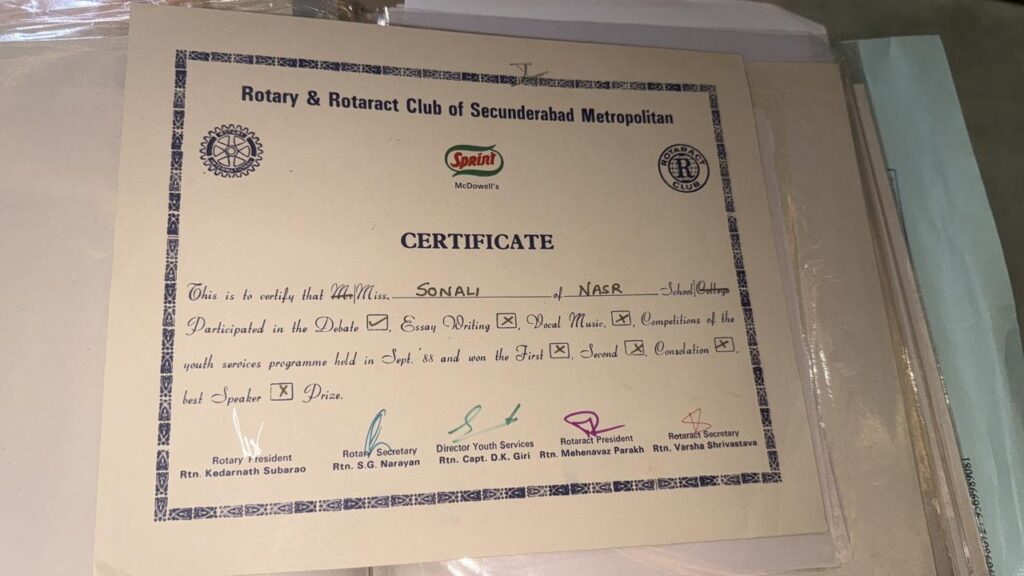 Rotary & Rotaract Club of Secunderabad Metropolitan
Sprint
McDowell's
ROTARACT
R
CLUB
CERTIFICATE
This is to certify that Mr/Miss. SONALI of NASR School/College
Participated in the Debate ☑, Essay Writing ☒, Vocal Music, ☒, Competitions of the
youth services programme held in Sept. '88 and won the First ☒, Second ☒, Consolation ☒,
best Speaker ☒ Prize.
Rotary President
Rtn. Kedarnath Subarao
Rotary Secretary
Rtn. S.G. Narayan
Director Youth Services
Rtn. Capt. D.K. Giri
Rotaract President
Rtn. Mehenavaz Parakh
Rotaract Secretary
Rtn. Varsha Shrivastava